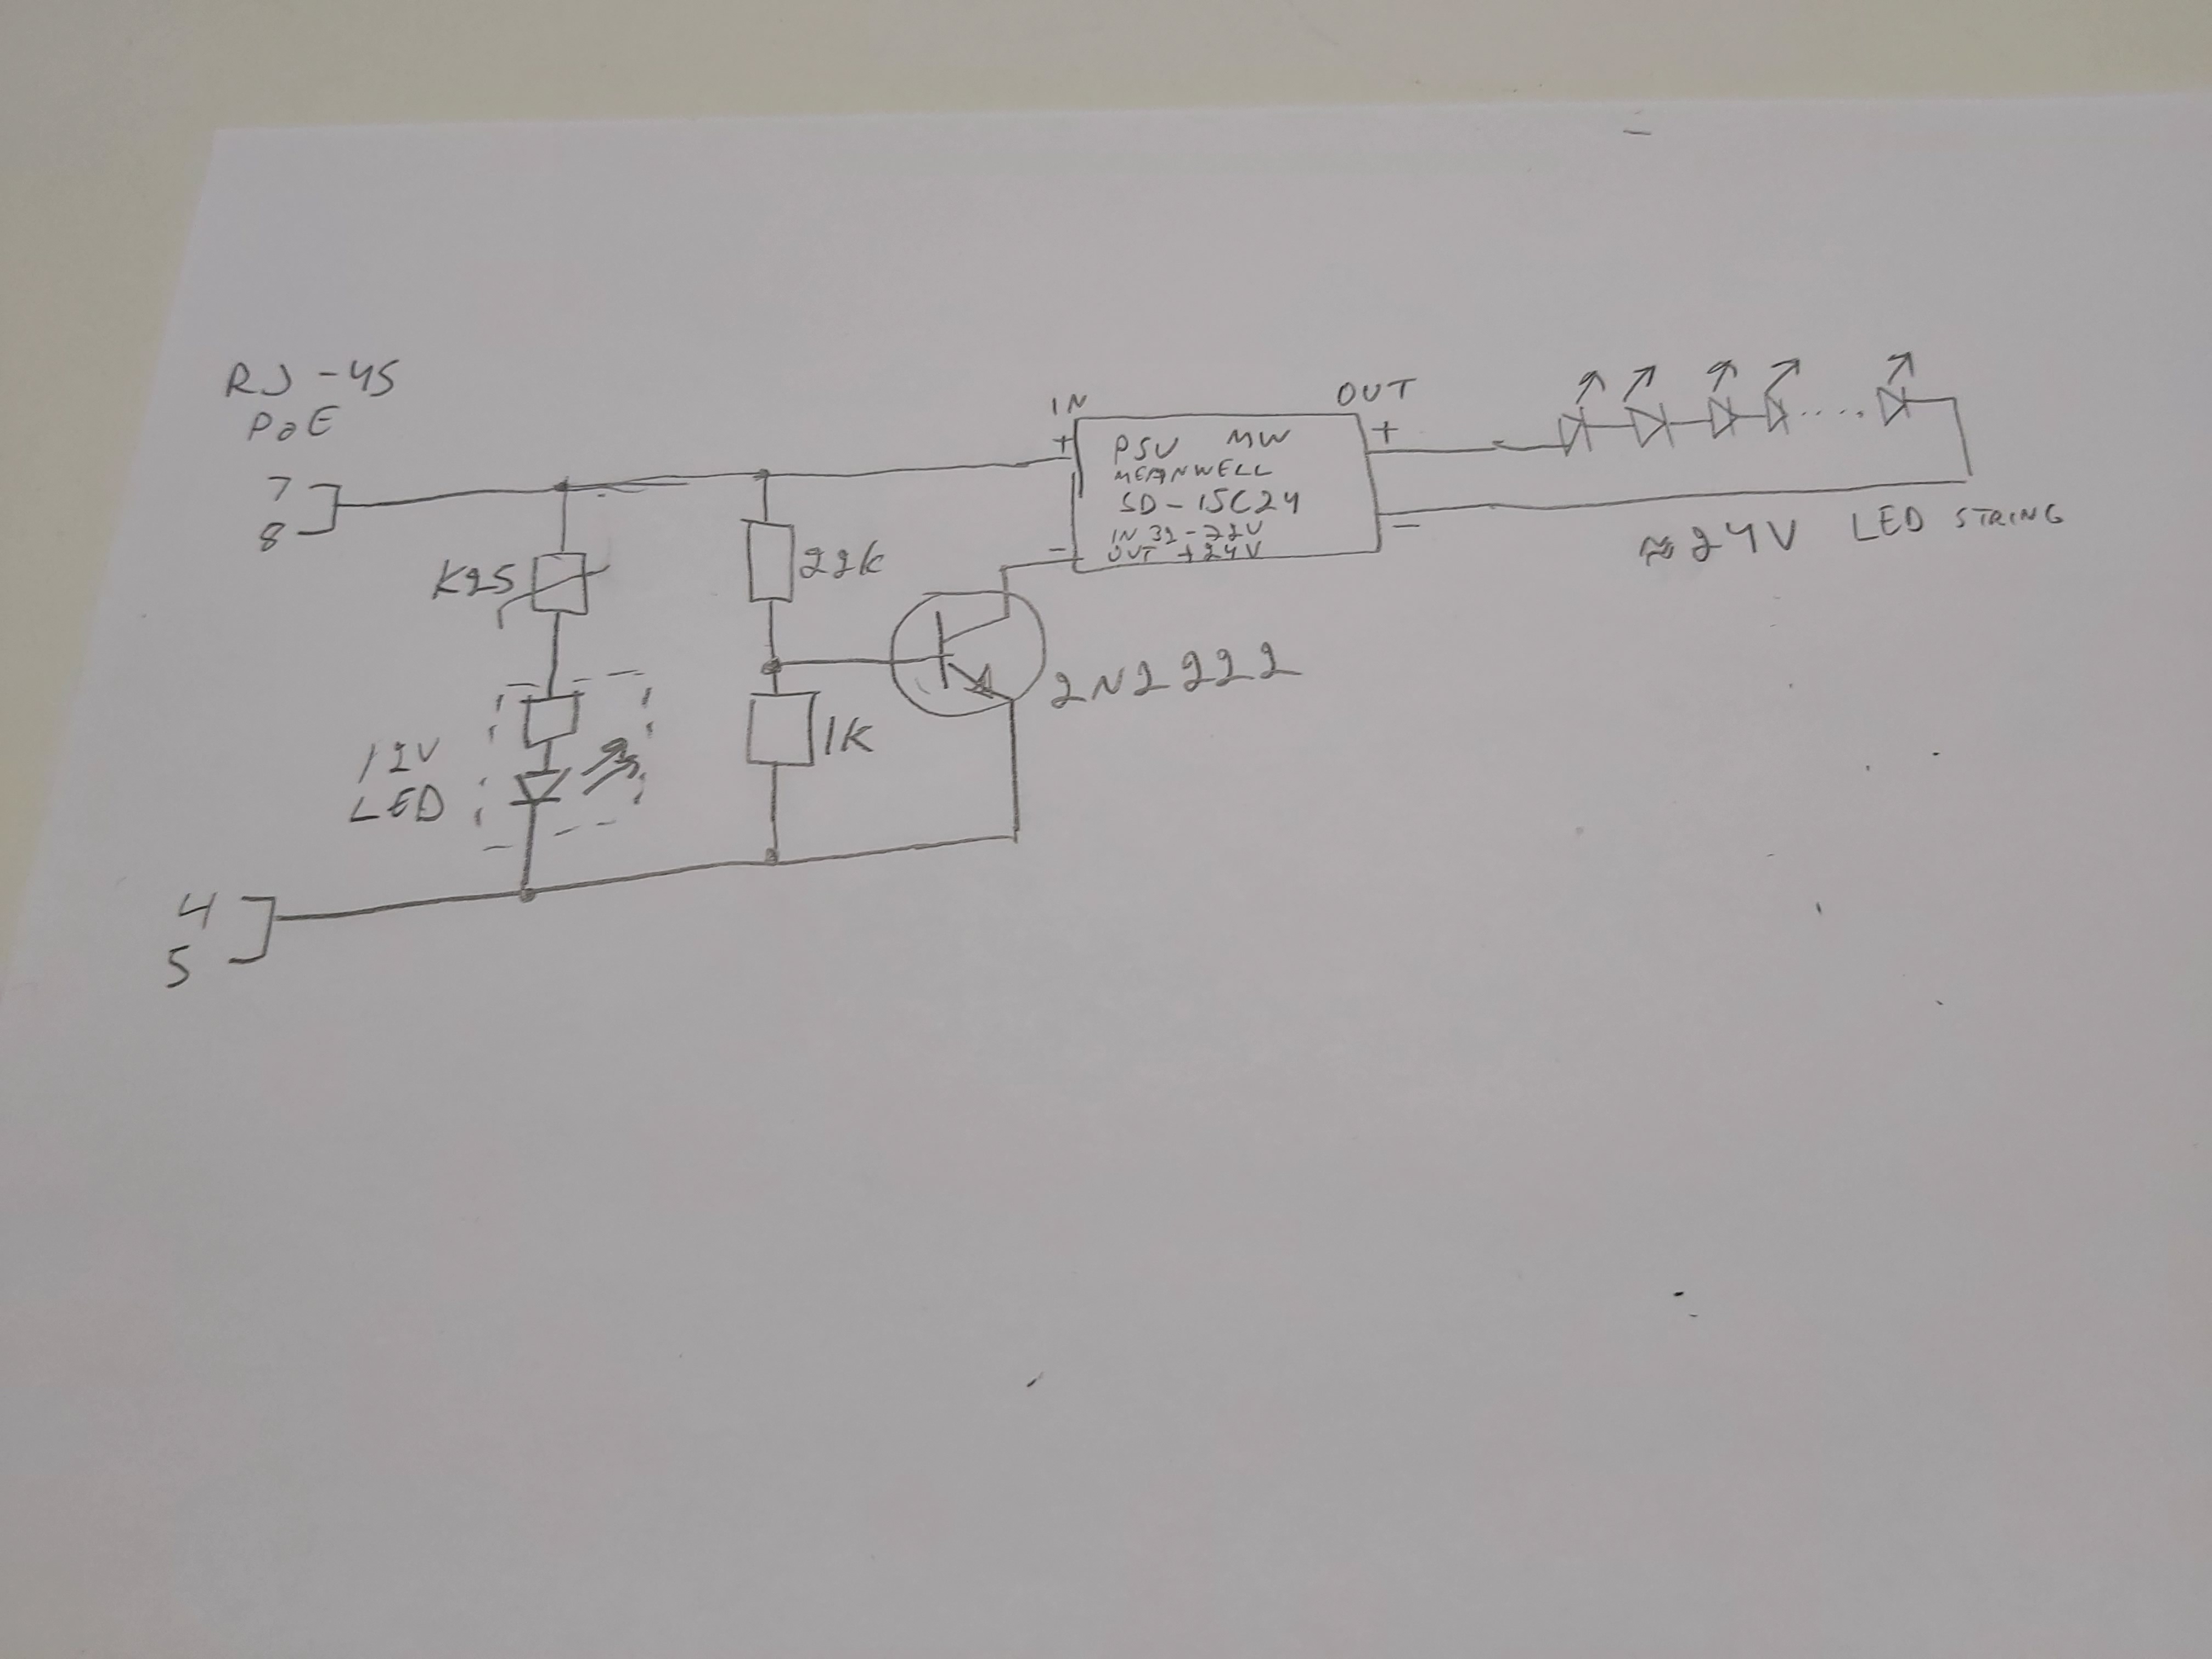 RJ-45
PoE
7
8
K25
12V
LED
4
5
22k
1K
2N2222
IN
OUT
+
-
PSU MW
MEANWELL
SD-15C24
IN 32-72V
OUT +24V
+
-
≈24V LED STRING